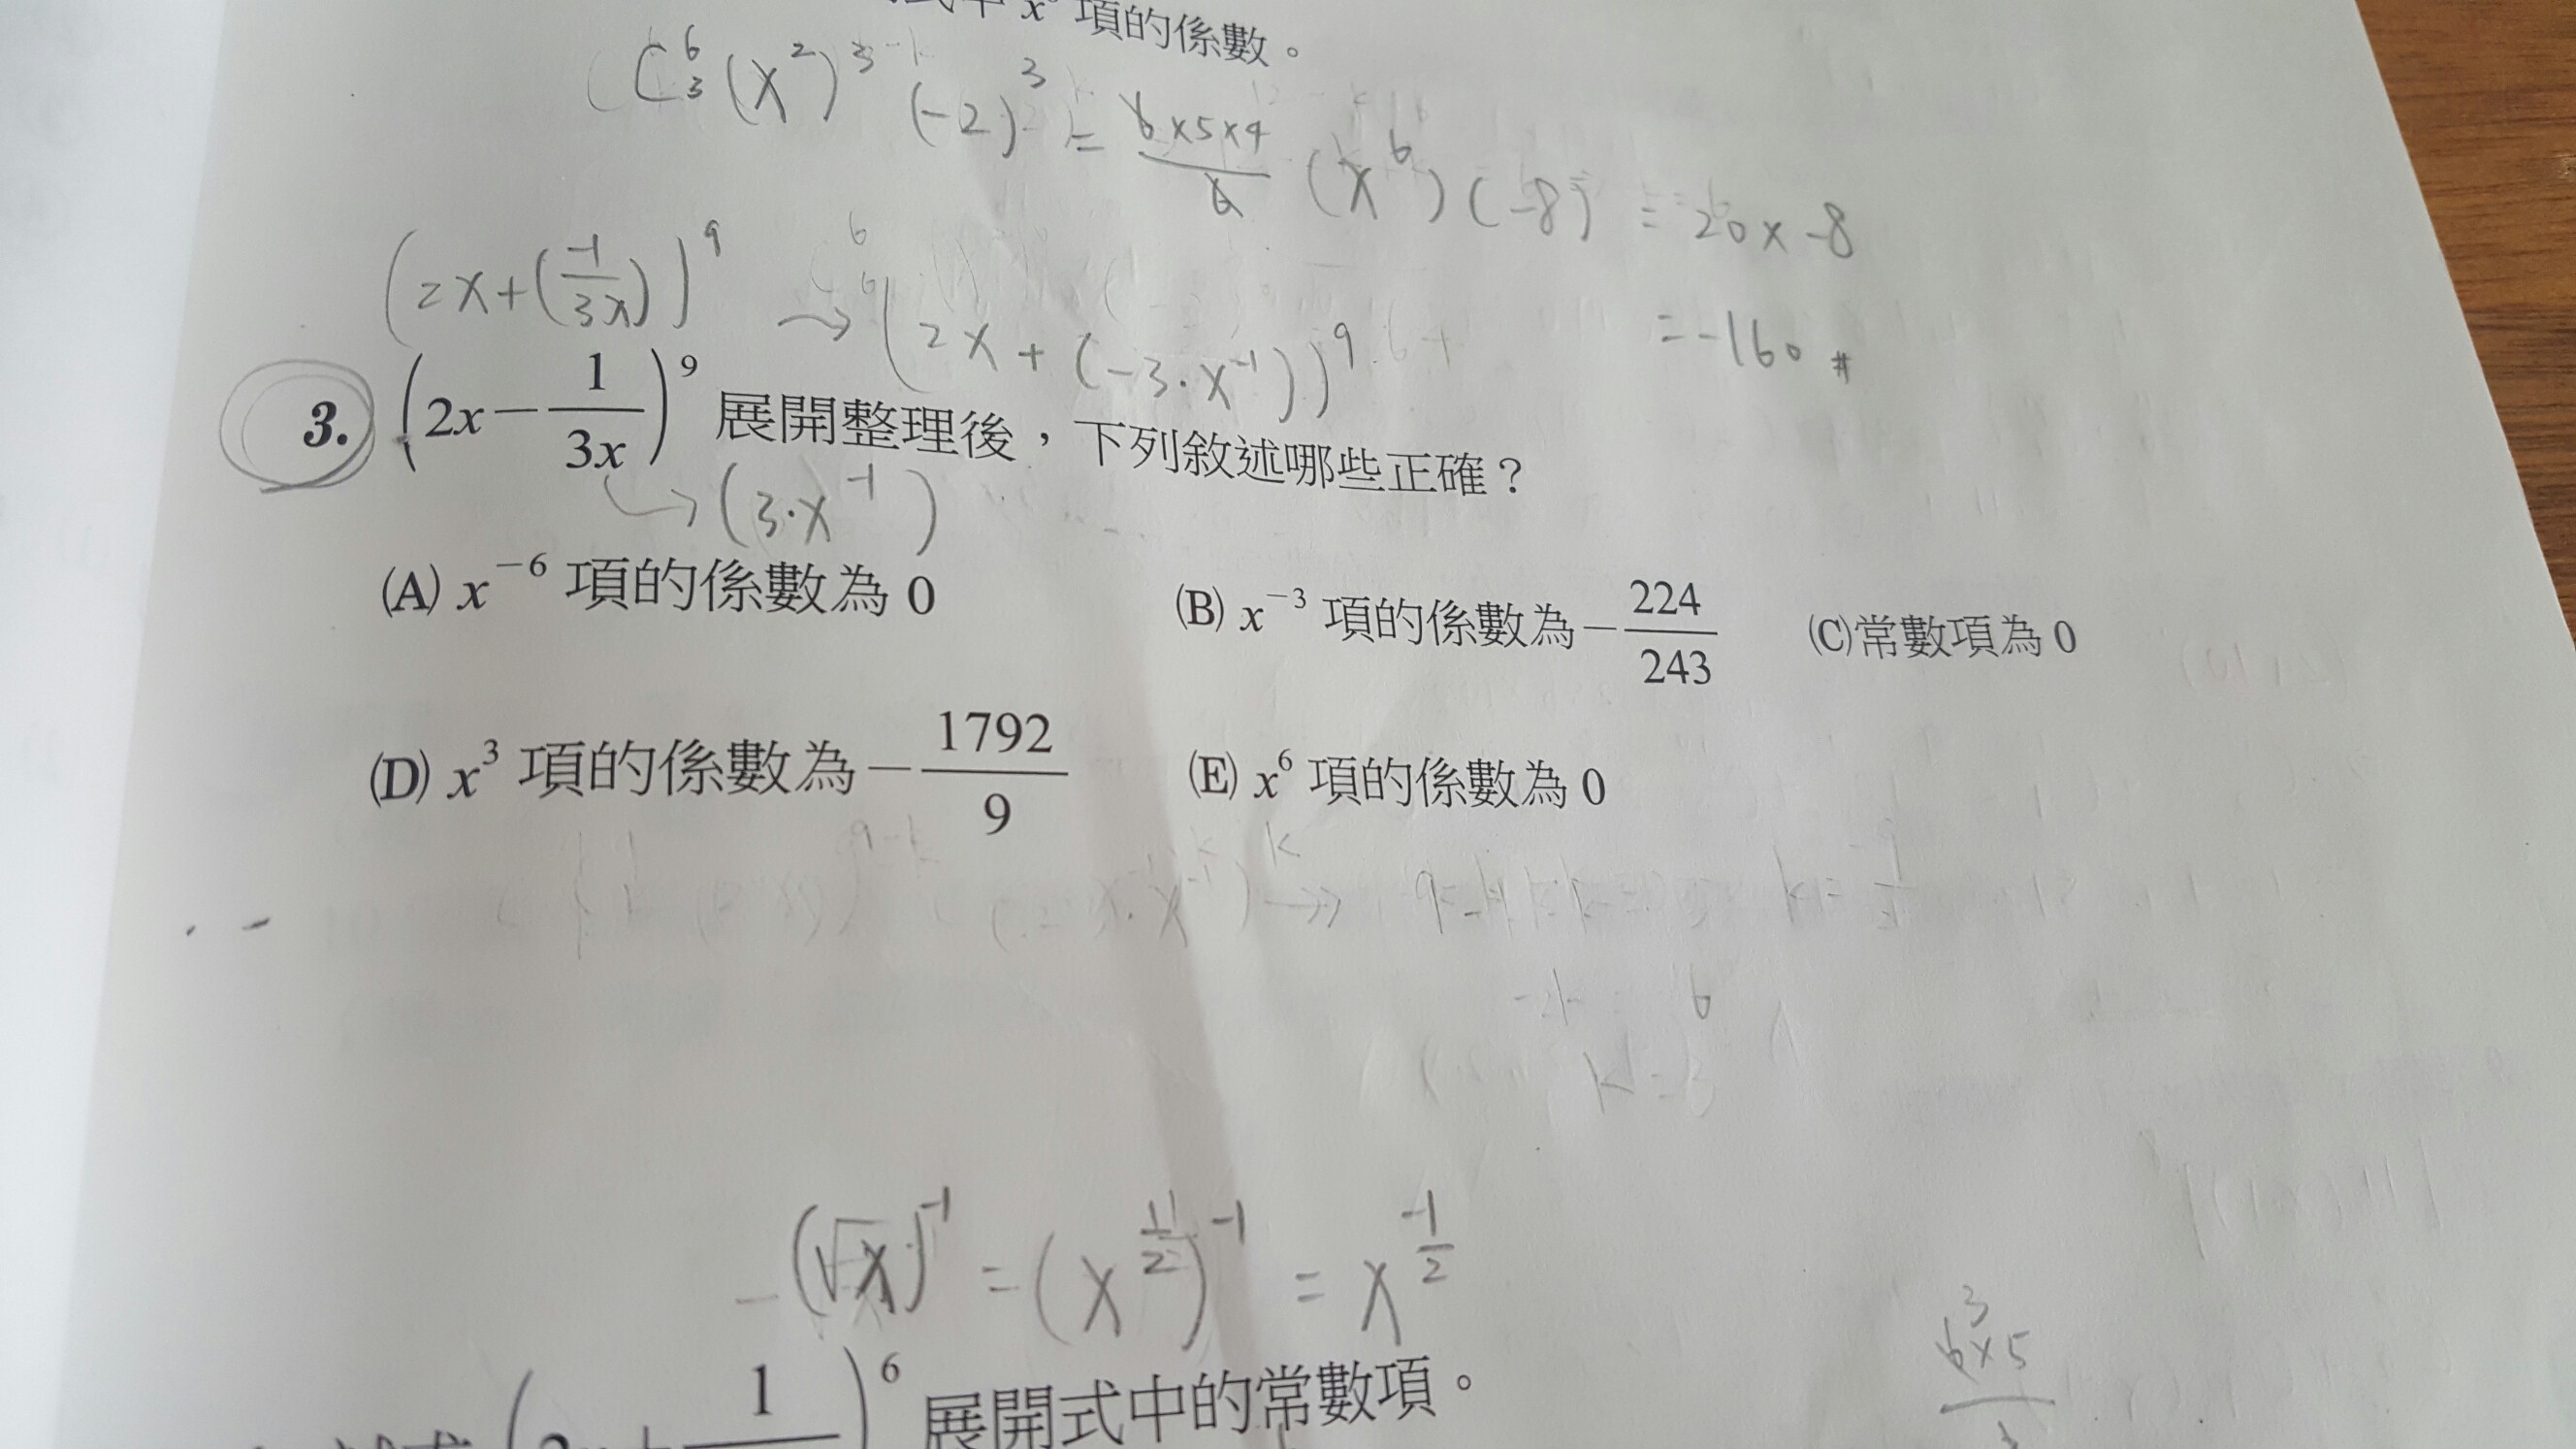 項的係數。
C⁶₃ (x²)³ (-2)³ = 6×5×4/6 (x⁶) (-8) = 20×-8
= -160 #
(2x+(-1/3x))⁹ → (2x+(-3·x⁻¹))⁹
3. (2x－1/3x)⁹ 展開整理後，下列敘述哪些正確？
→ (3·x⁻¹)
(A) x⁻⁶ 項的係數為 0 (B) x⁻³ 項的係數為－224/243 (C)常數項為 0
(D) x³ 項的係數為－1792/9 (E) x⁶ 項的係數為 0
-(√x)⁻¹ = (x^(1/2))⁻¹ = x^(-1/2)
6×5
3
1 ⁶ 展開式中的常數項。